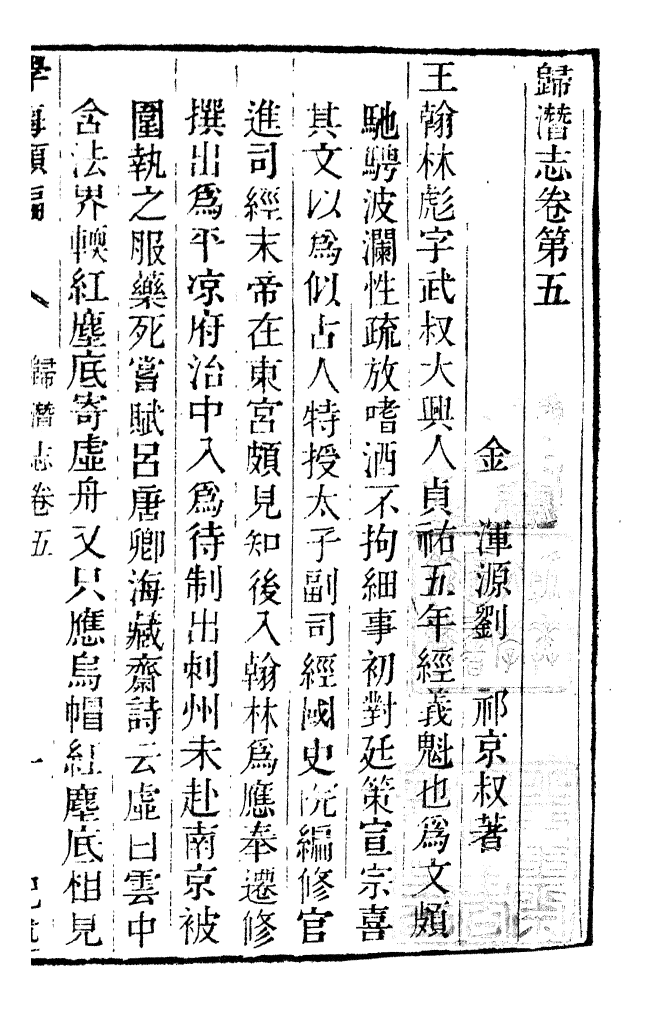 歸潛志卷第五
金　渾源劉　祁京叔著
王翰林彪字武叔大興人貞祐五年經義魁也爲文頗
馳騁波瀾性疏放嗜酒不拘細事初對廷策宣宗喜
其文以爲似古人特授太子副司經國史院編修官
進司經末帝在東宮頗見知後入翰林爲應奉遷修
撰出爲平凉府治中入爲待制出刺州未赴南京被
圍執之服藥死嘗賦呂唐卿海藏齋詩云虛白雲中
含法界輭紅塵底寄虛舟又只應烏帽紅塵底相見
學海類編
歸潛志卷五
一